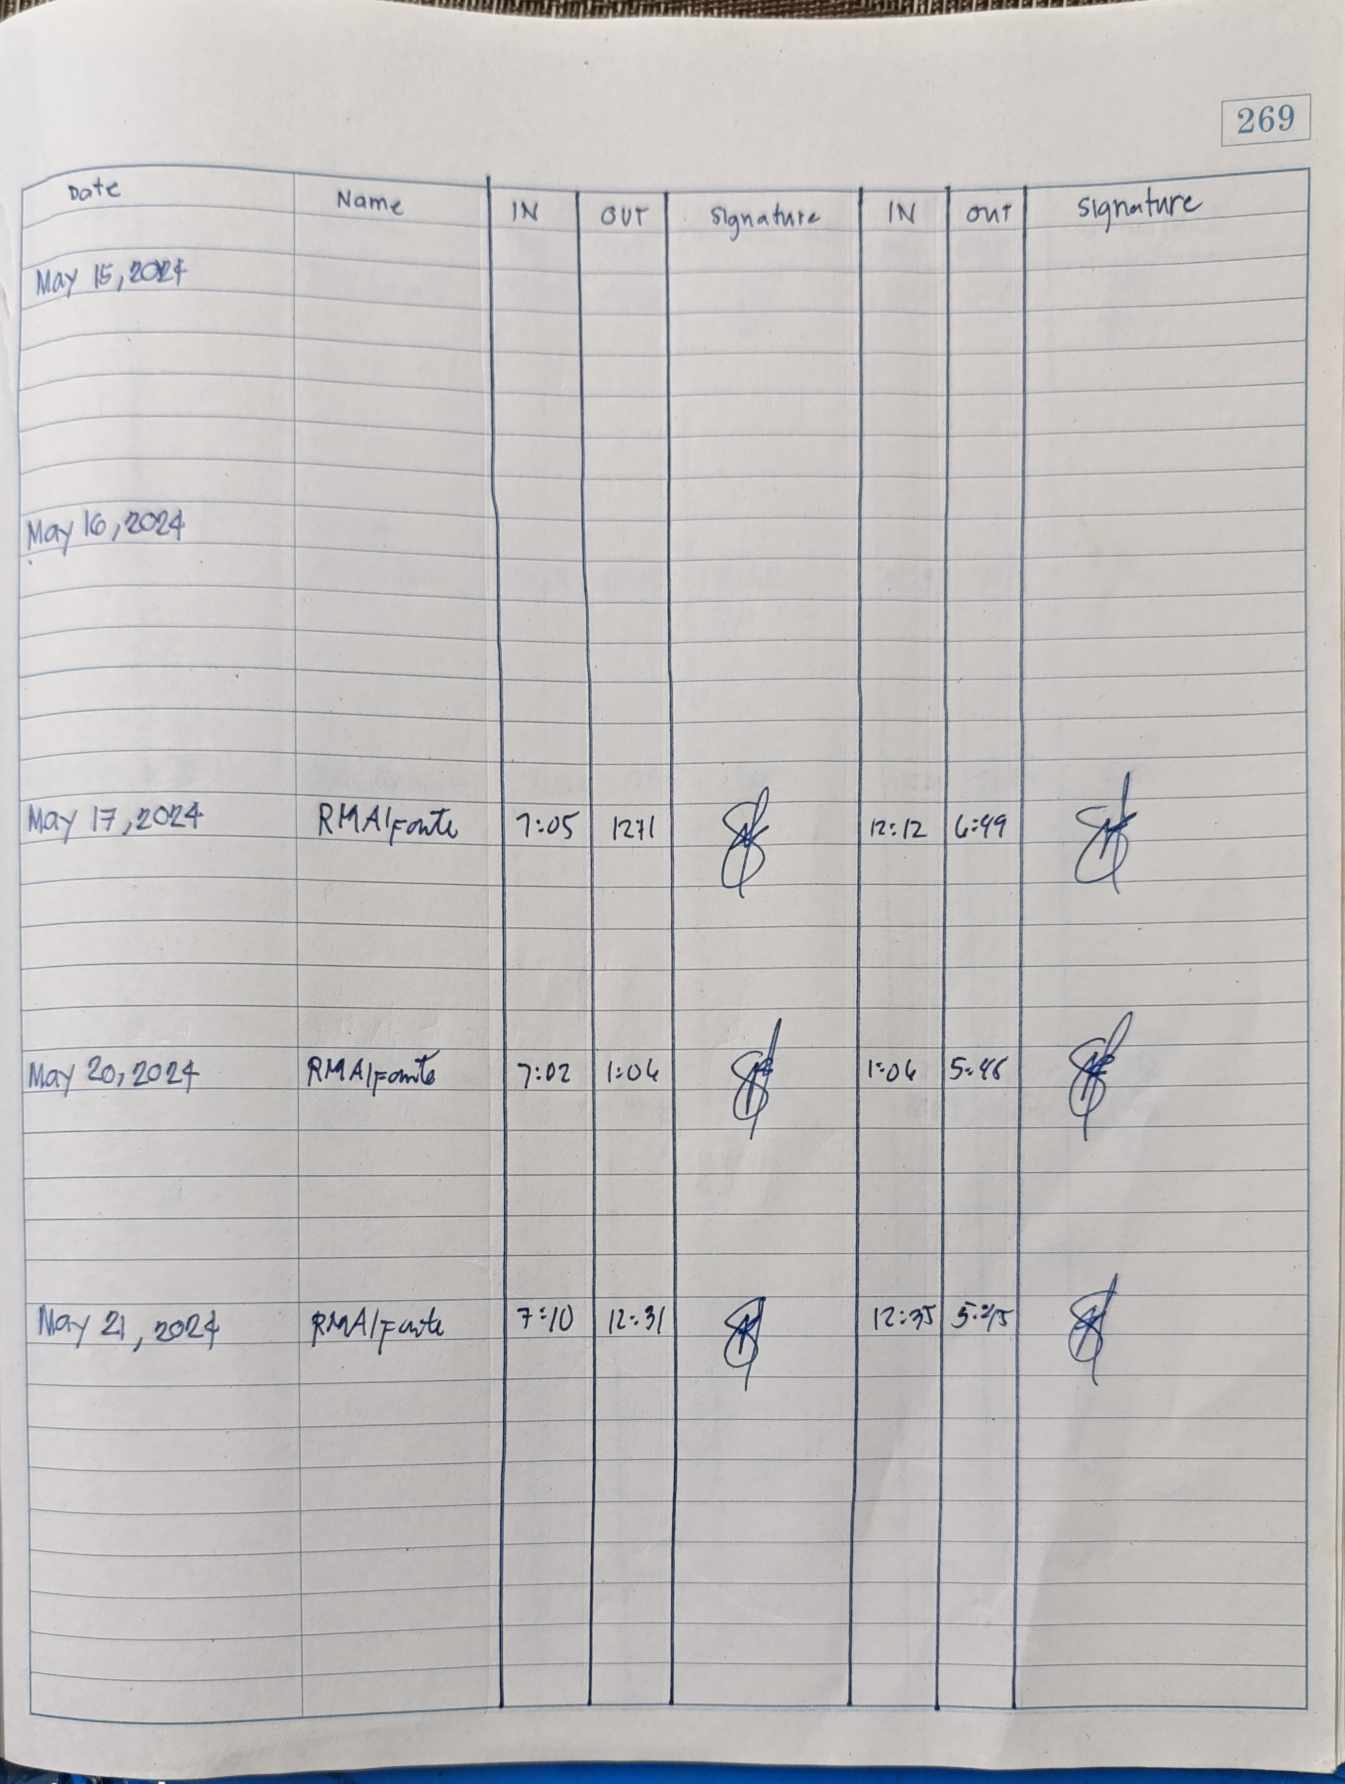 269
Date Name IN OUT Signature IN OUT Signature
May 15, 2024
May 16, 2024
May 17, 2024 RMAlfonte 7:05 1271 12:12 6:49
May 20, 2024 RMAlfonte 7:02 1:06 1:06 5:46
May 21, 2024 RMAlfonte 7:10 12:31 12:35 5:45